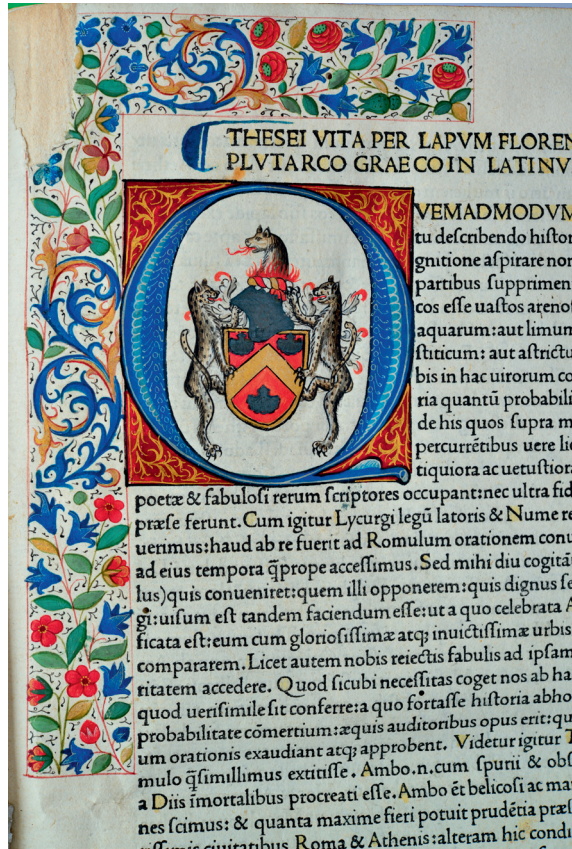 THESEI VITA PER LAPVM FLOREN
PLVTARCO GRAECO IN LATINV
QVEMADMODVM
tu deſcribendo hiſtor
gnitione aſpirare non
partibus ſupprimen
cos eſſe uaſtos arenoſ
aquarum: aut limum
ſticum: aut aſtrictu
bis in hac uirorum co
ria quantū probabili
de his quos ſupra m
percurrētibus uere lic
tiquiora ac uetuſtiora
poetæ & fabuloſi rerum ſcriptores occupant: nec ultra fid
præſe ferunt. Cum igitur Lycurgi legū latoris & Nume re
uerimus: haud ab re fuerit ad Romulum orationem conu
ad eius tempora q̄prope acceſſimus. Sed mihi diu cogitā
lus) quis conueniret: quem illi opponerem: quis dignus ſe
gi: uiſum eſt tandem faciendum eſſe: ut a quo celebrata A
ficata eſt: eum cum glorioſiſſimæ atq; inuictiſſimæ urbis
compararem. Licet autem nobis reiectis fabulis ad ipſam
ritatem accedere. Quod ſicubi neceſſitas coget nos ab ha
quod ueriſimile ſit conferre: a quo fortaſſe hiſtoria abho
probabilitate cōmertium: æquis auditoribus opus erit: qu
um orationis exaudiant atq; approbent. Videtur igitur T
mulo q̄ſimillimus extitiſſe. Ambo.n.cum ſpurii & obſ
a Diis īmortalibus procreati eſſe. Ambo ēt belicoſi ac ma
nes ſcimus: & quanta maxime fieri potuit prudētia præſ
tiſſimis ciuitatibus Roma & Athenis: alteram hic condi